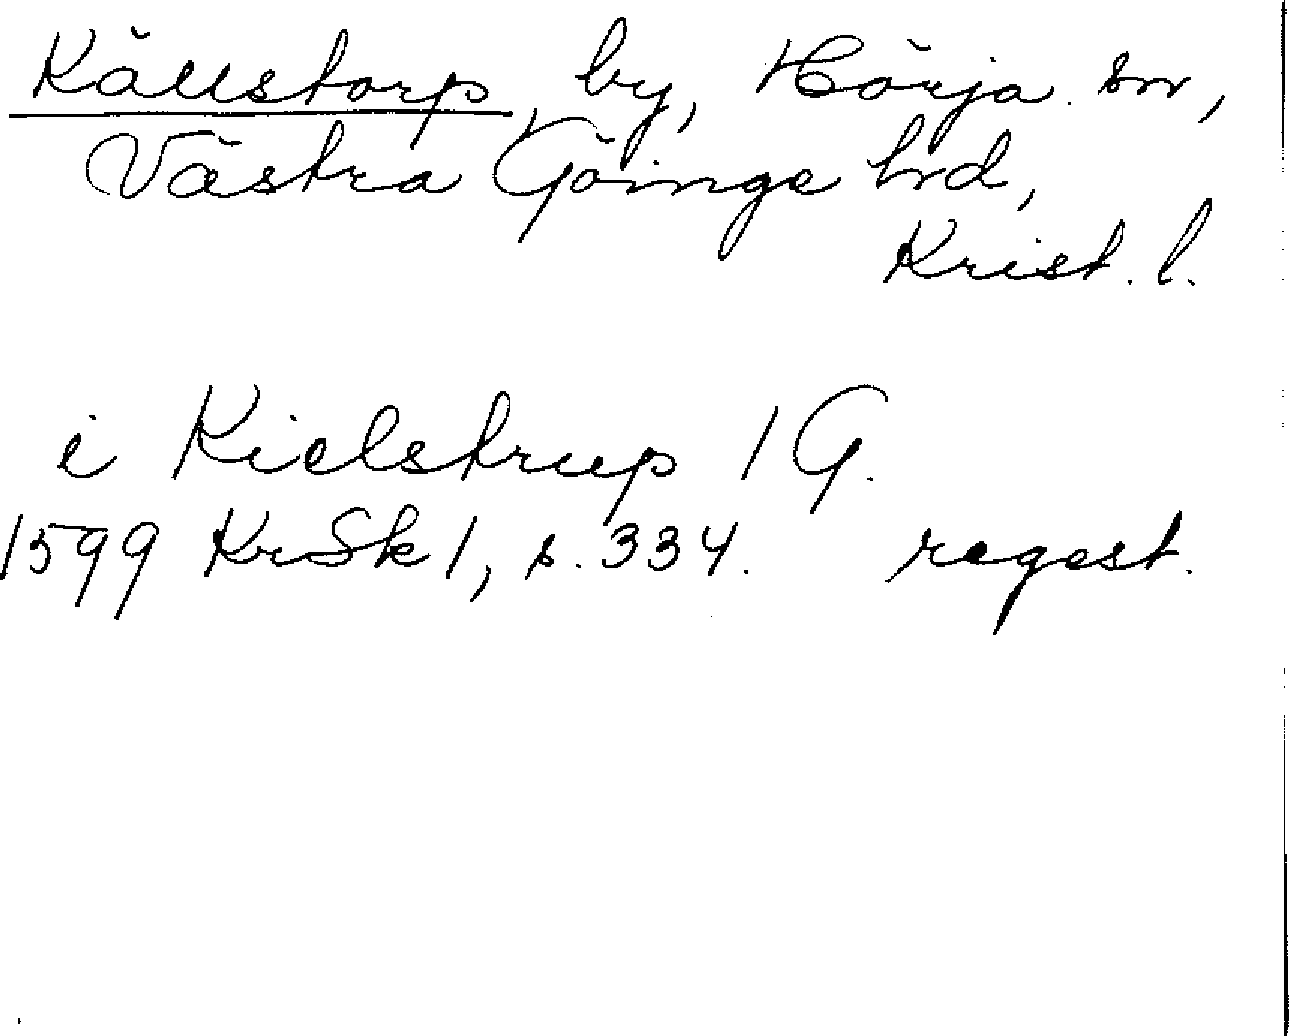 Källstorp, by, Hörja sn,
Västra Göinge hrd,
Krist. l.
i Kielstrup 1 G.
1599 KrSk 1, s. 334. regest.